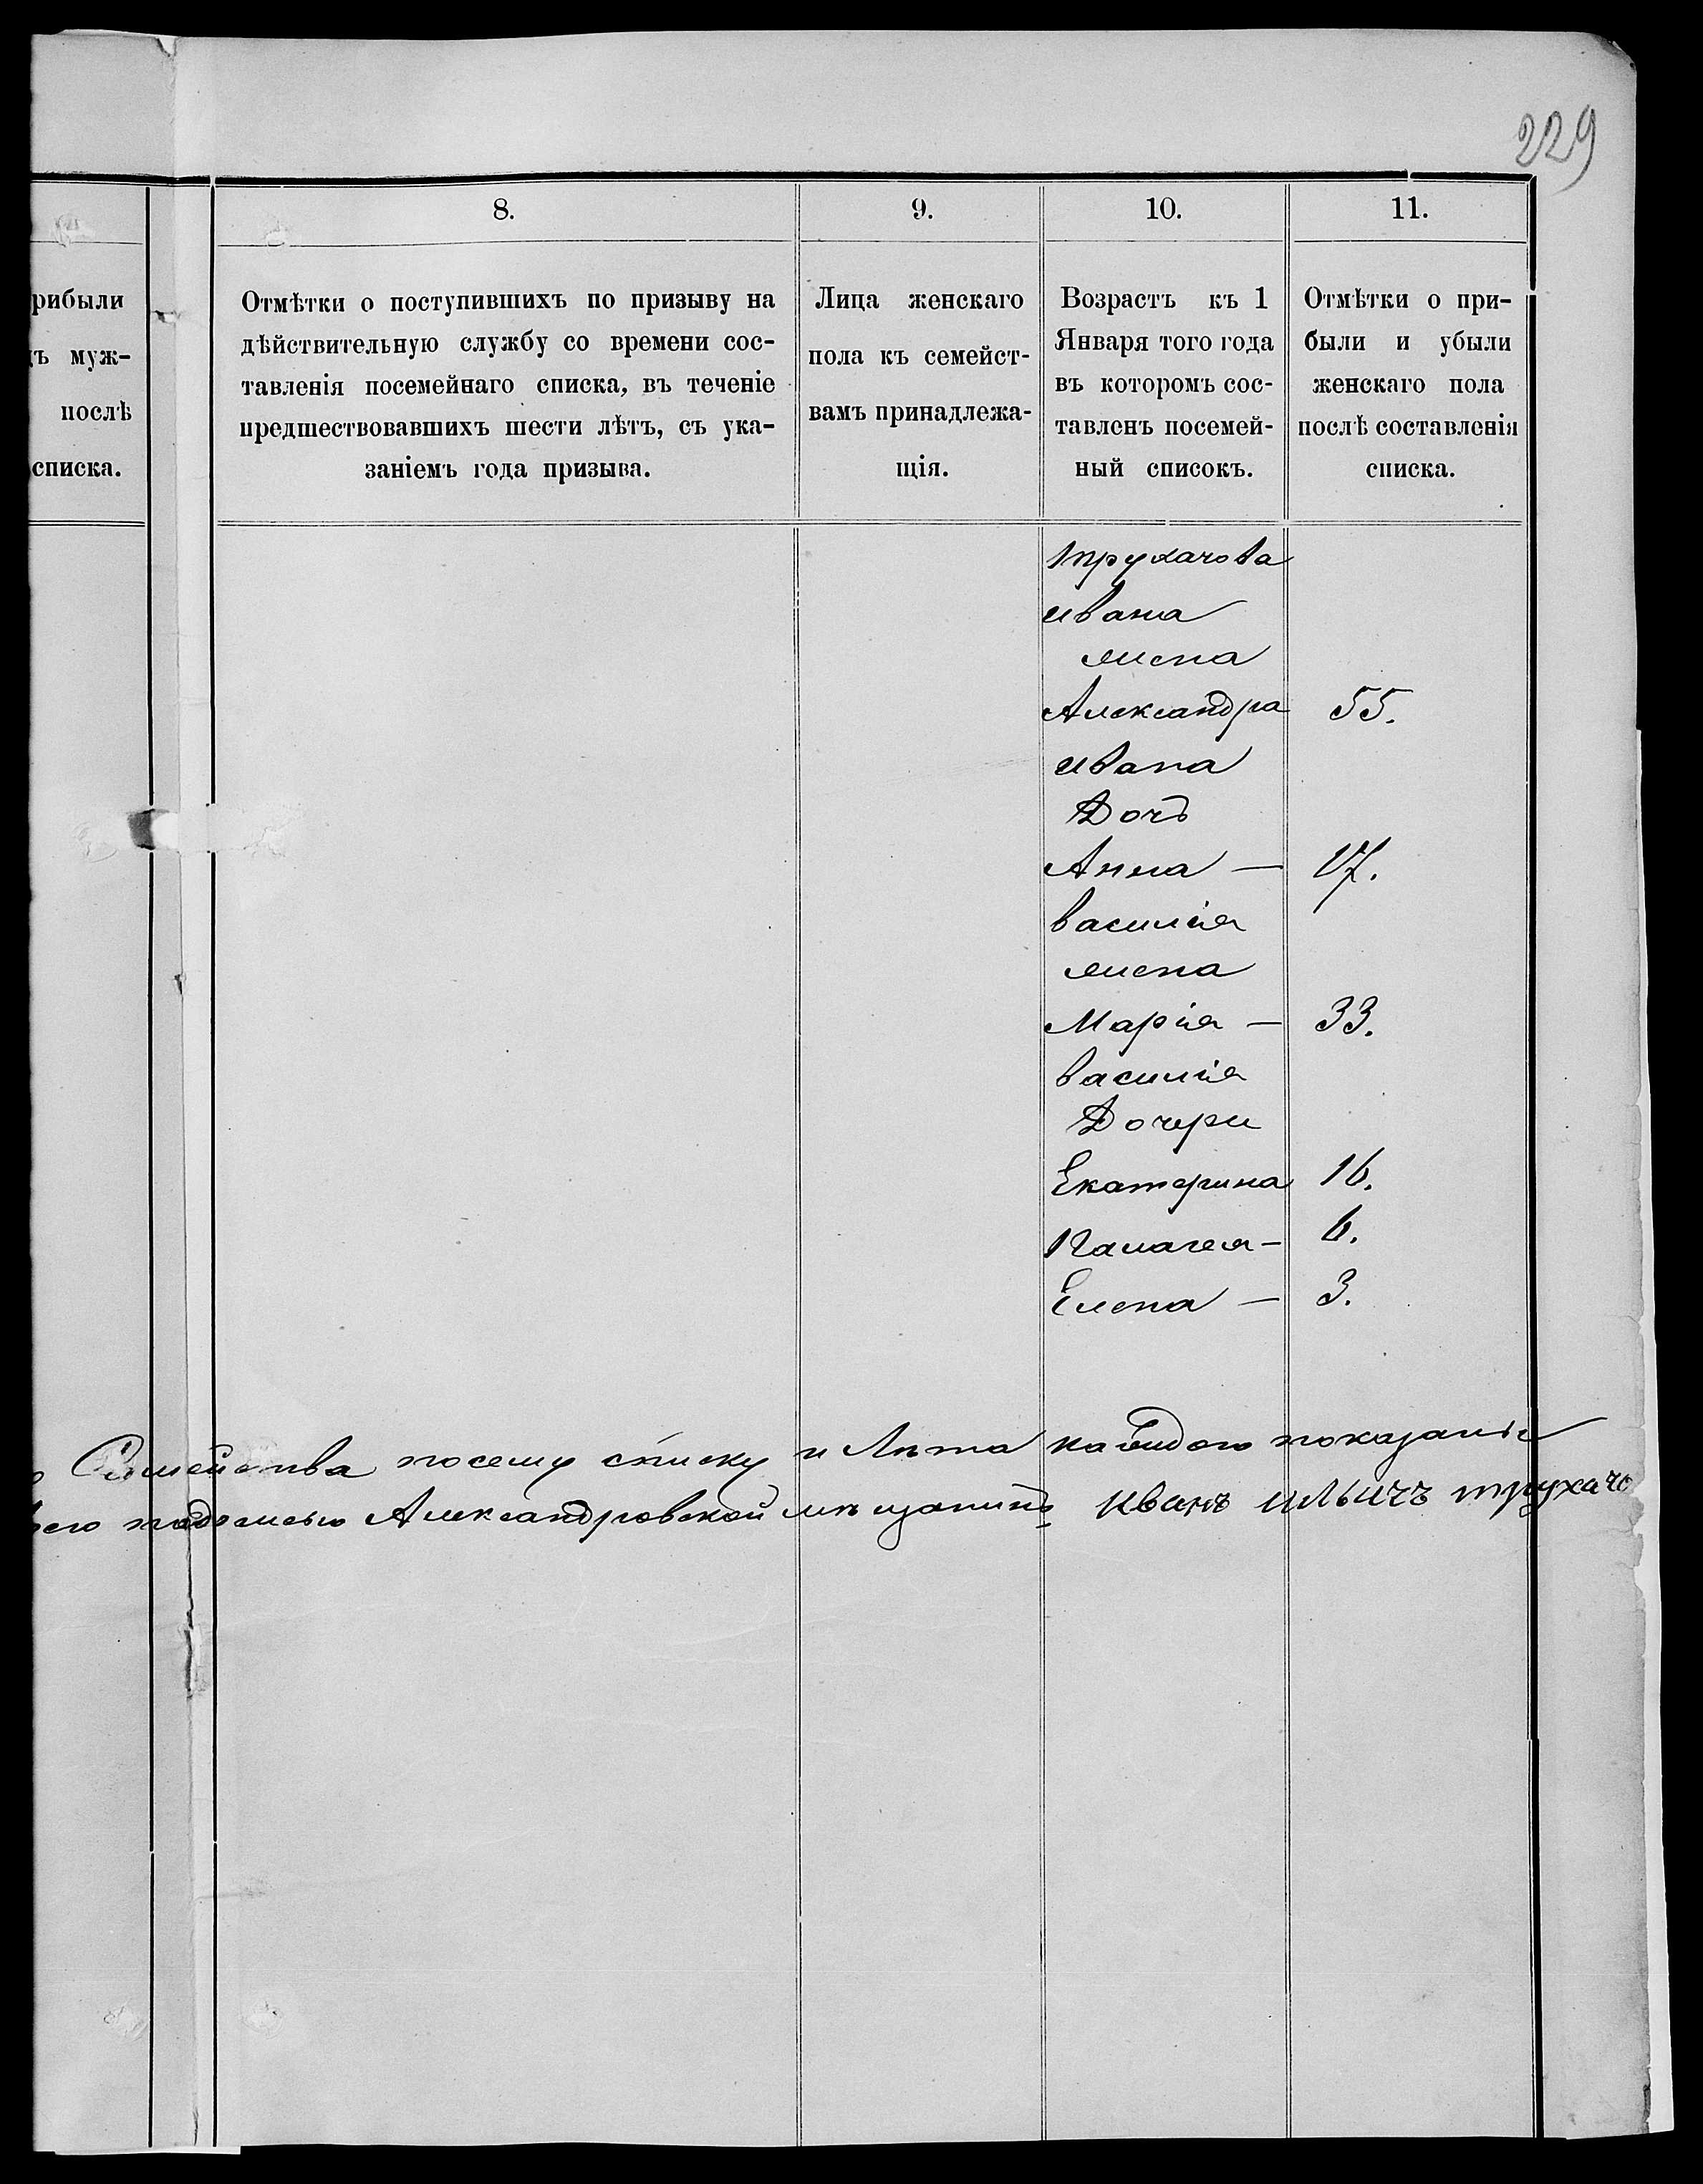 229
8.
9.
10.
11.
рибыли
ъ муж-
послѣ
списка.
Отмѣтки о поступившихъ по призыву на
дѣйствительную службу со времени сос-
тавленія посемейнаго списка, въ теченіе
предшествовавшихъ шести лѣтъ, съ ука-
заніемъ года призыва.
Лица женскаго
пола къ семейст-
вамъ принадлежа-
щія.
Возрастъ къ 1
Января того года
въ которомъ сос-
тавленъ посемей-
ный списокъ.
Отмѣтки о при-
были и убыли
женскаго пола
послѣ составленія
списка.
трухачова
ивана
жена
Александра 55.
ивана
Дочь
Анна — 17.
василія
жена
Марія — 33.
василія
Дочери
Екатерина 16.
Палагея — 6.
Елена — 3.
Семейства посему списку и Лѣта каждого показаны
его подписью Александровской мѣщанинъ иванъ ильичъ трухачо